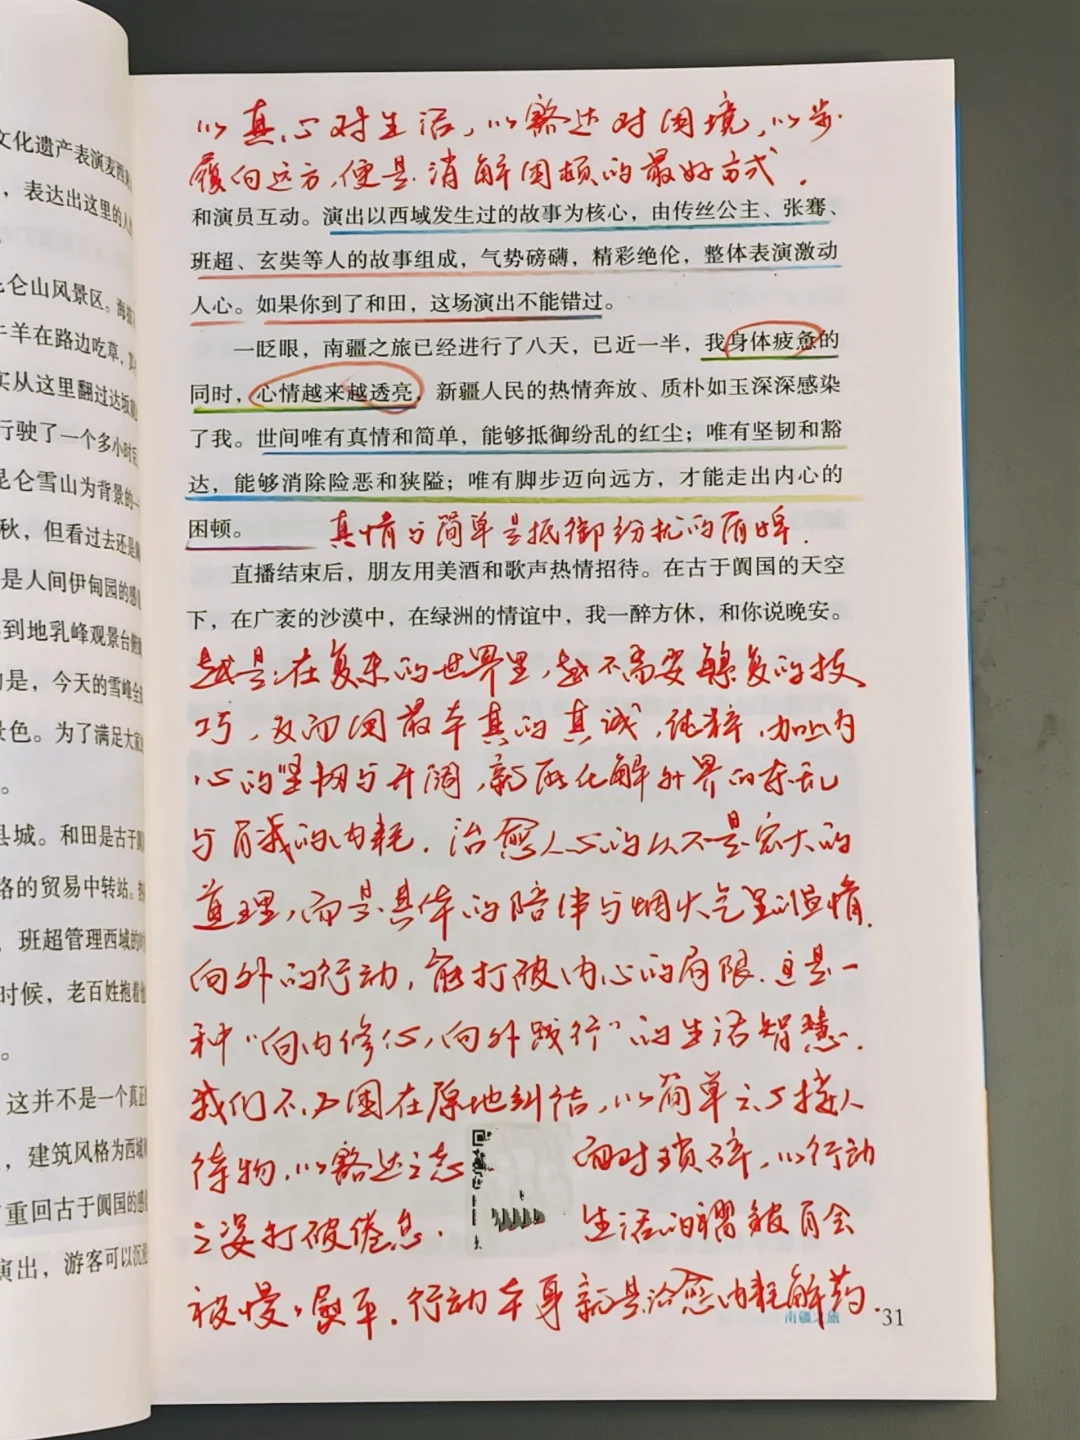 文化遗产表演麦西
，表达出这里的人
仑山风景区。海
牛羊在路边吃草，
实从这里翻过达坂
行驶了一个多小时
昆仑雪山为背景的一
秋，但看过去还是
是人间伊甸园的感
到地乳峰观景台
的是，今天的雪峰全
景色。为了满足大家
。
县城。和田是古于阗
路的贸易中转站。
，班超管理西域的时
时候，老百姓抱着他
。
这并不是一个真正
，建筑风格为西域
重回古于阗国的感
演出，游客可以沉
以真心对生活，以豁达对困境，以步
履向远方，便是消解困顿的最好方式。
和演员互动。演出以西域发生过的故事为核心，由传丝公主、张骞、
班超、玄奘等人的故事组成，气势磅礴，精彩绝伦，整体表演激动
人心。如果你到了和田，这场演出不能错过。
一眨眼，南疆之旅已经进行了八天，已近一半，我身体疲惫的
同时，心情越来越透亮，新疆人民的热情奔放、质朴如玉深深感染
了我。世间唯有真情和简单，能够抵御纷乱的红尘；唯有坚韧和豁
达，能够消除险恶和狭隘；唯有脚步迈向远方，才能走出内心的
困顿。 真情与简单是抵御纷扰的屏障。
直播结束后，朋友用美酒和歌声热情招待。在古于阗国的天空
下，在广袤的沙漠中，在绿洲的情谊中，我一醉方休，和你说晚安。
越是在复杂的世界里，越不需要繁复的技
巧，反而因最本真的真诚，纯粹，加以内
心的坚韧与开阔，就能化解外界的杂乱
与自我的内耗。治愈人心的从不是宏大的
道理，而是具体的陪伴与烟火气里的温情。
向外的行动，能打破内心的局限。这是一
种“向内修心，向外践行”的生活智慧。
我们不必困在原地纠结，以简单之心接人
待物，以豁达之态 面对琐碎，以行动
之姿打破倦怠。 生活的褶皱自会
被慢慢熨平。行动本身就是治愈内耗解药。
南疆之旅 31